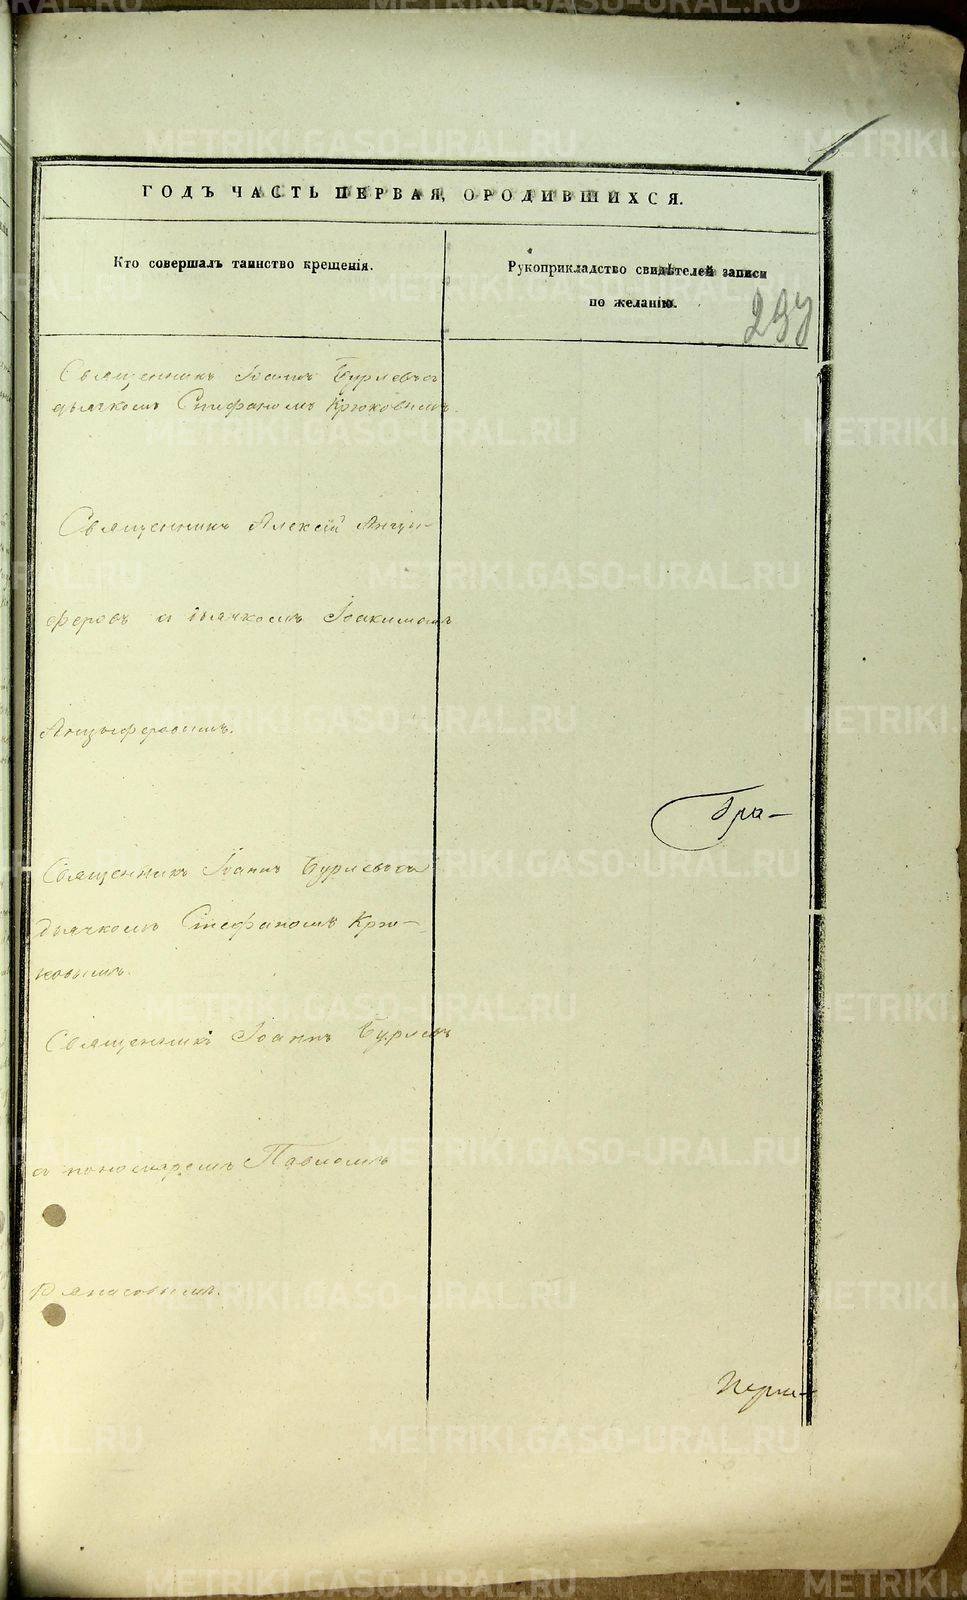 ГОДЪ ЧАСТЬ ПЕРВАЯ, О РОДИВШИХСЯ.
Кто совершалъ таинство крещенія.
Рукоприкладство свидѣтелей записи
по желанію.
Священникъ Іоаннъ Бурлевъ съ
дьячкомъ Стефаномъ Крюковымъ.
Священникъ Алексій Анцы-
феровъ съ дьячкомъ Іоакимомъ
Анцыферовымъ.
Бра-
Священникъ Іоаннъ Бурлевъ съ
дьячкомъ Стефаномъ Крю-
ковымъ.
Священникъ Іоаннъ Бурлевъ
съ пономаремъ Павломъ
METRIKI.GASO-URAL.RU